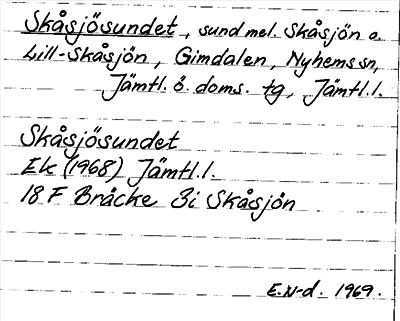 Skåsjösundet, sund mel. Skåsjön o.
Lill-Skåsjön, Gimdalen, Nyhems sn,
Jämtl. ö. doms. tg, Jämtl. l.
Skåsjösundet
Ek (1968) Jämtl. l.
18 F Bräcke 3i Skåsjön
E.N-d. 1969.